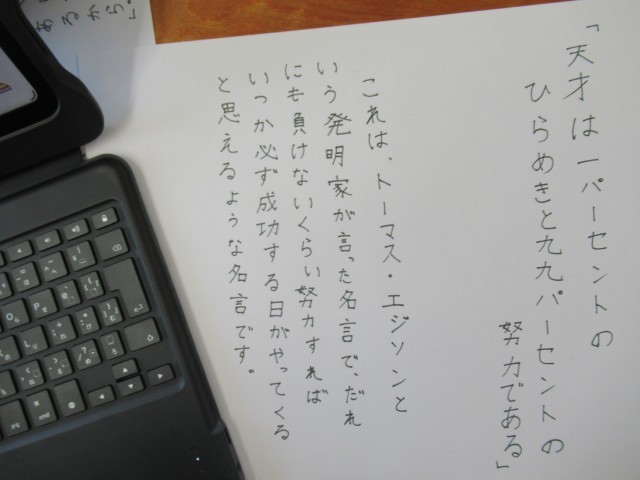 「天才は一パーセントの
ひらめきと九九パーセントの
努力である」
これは、トーマス・エジソンと
いう発明家が言った名言で、だれ
にも負けないくらい努力すれば
いつか必ず成功する日がやってくる
と思えるような名言です。
あるから」。